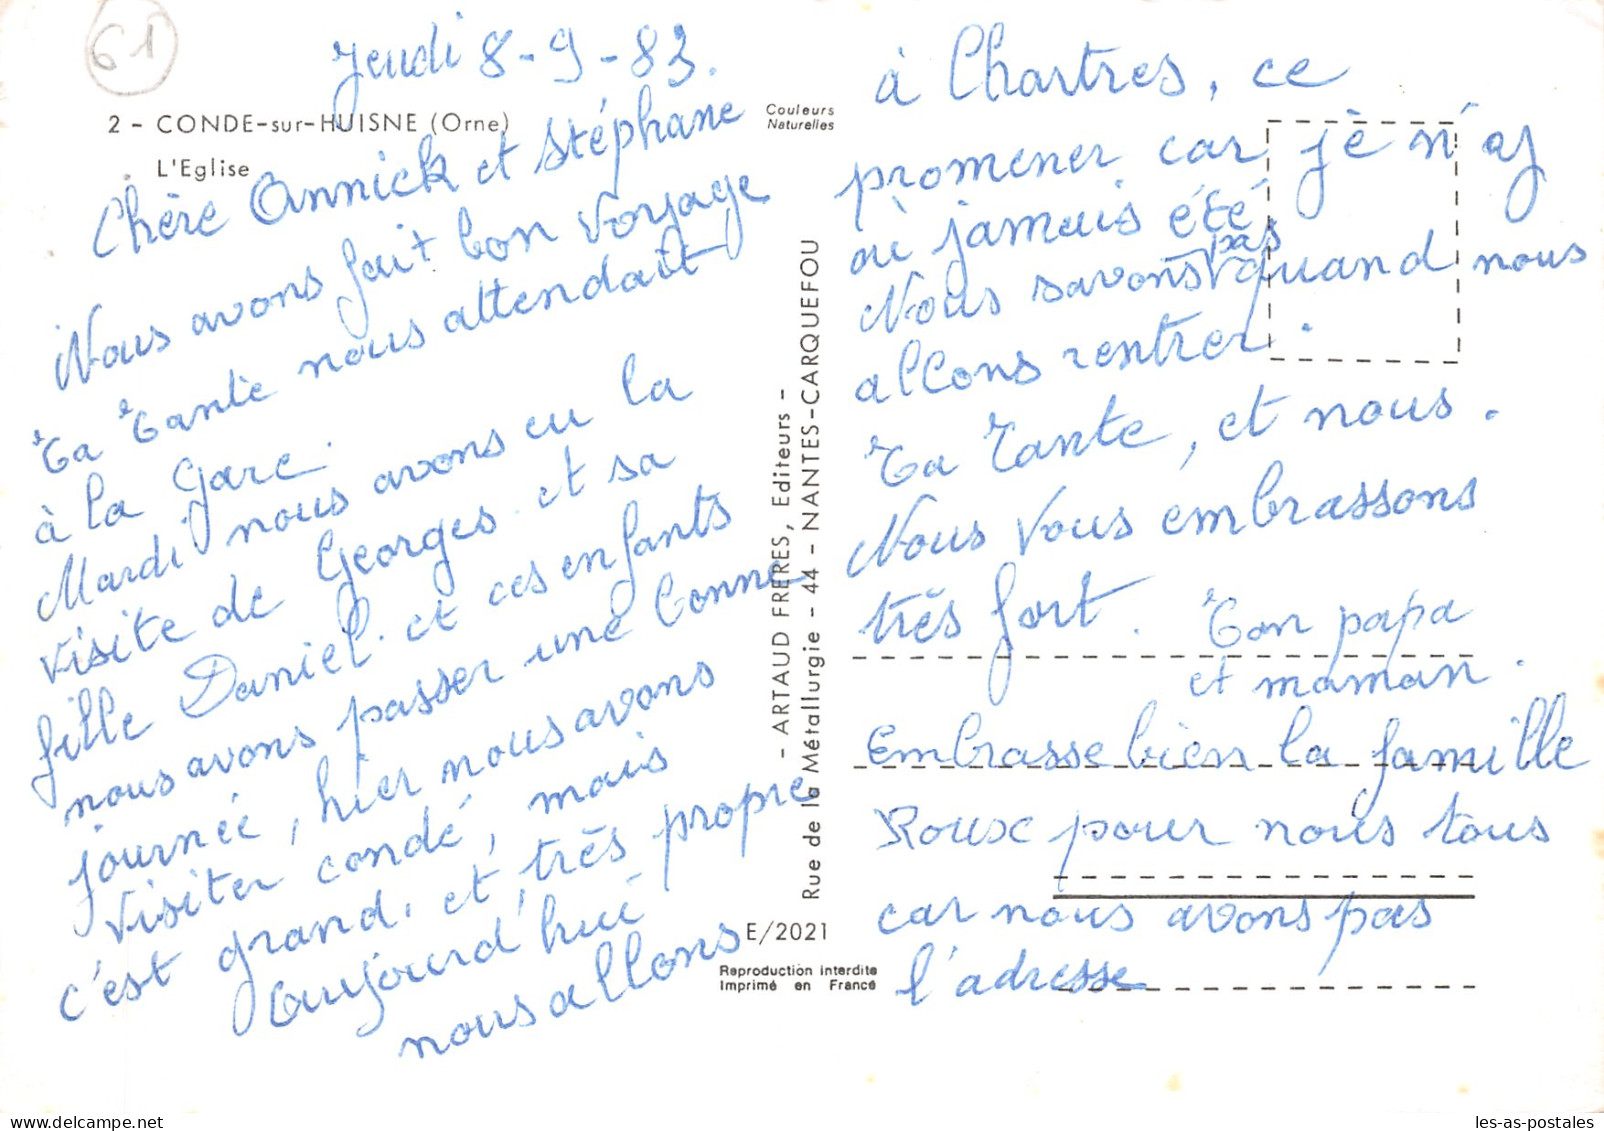 61
Jeudi 8-9-83.
2 - CONDE-sur-HUISNE (Orne)
L'Eglise
Couleurs
Naturelles
Chère Annick et Stéphane
Nous avons fait bon voyage
Ta Tante nous attendait
à la gare.
Mardi nous avons eu la
visite de Georges et sa
fille Daniel et ces enfants
nous avons passer une bonne
journée, hier nous avons
visiter condé, mais
c'est grand, et très propre
Aujourd'hui
nous allons
- ARTAUD FRERES, Editeurs -
Rue de la Métallurgie - 44 - NANTES-CARQUEFOU
E/2021
Reproduction interdite
Imprimé en France
à Chartres, ce
promener car je n'ay
ai jamais été
Nous savons pas quand nous
allons rentrer.
Ta Tante, et nous.
Nous vous embrassons
très fort. Ton papa
et maman.
Embrasse bien la famille
Roux pour nous tous
car nous avons pas
l'adresse
les-as-postales